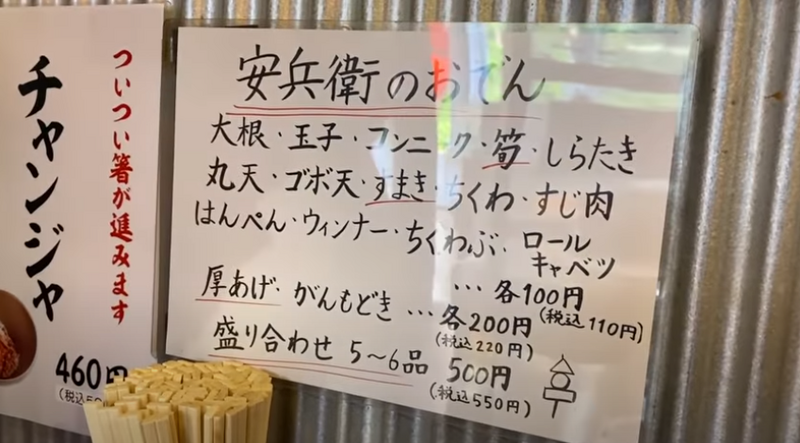 ついつい箸が進みます
チャンジャ
460円
安兵衛のおでん
大根・玉子・コンニク・筍・しらたき
丸天・ゴボ天・すまき・ちくわ・すじ肉
はんぺん・ウィンナー・ちくわぶ・ロールキャベツ
… 各100円
(税込110円)
厚あげ・がんもどき … 各200円
(税込220円)
盛り合わせ 5〜6品 500円
(税込550円)